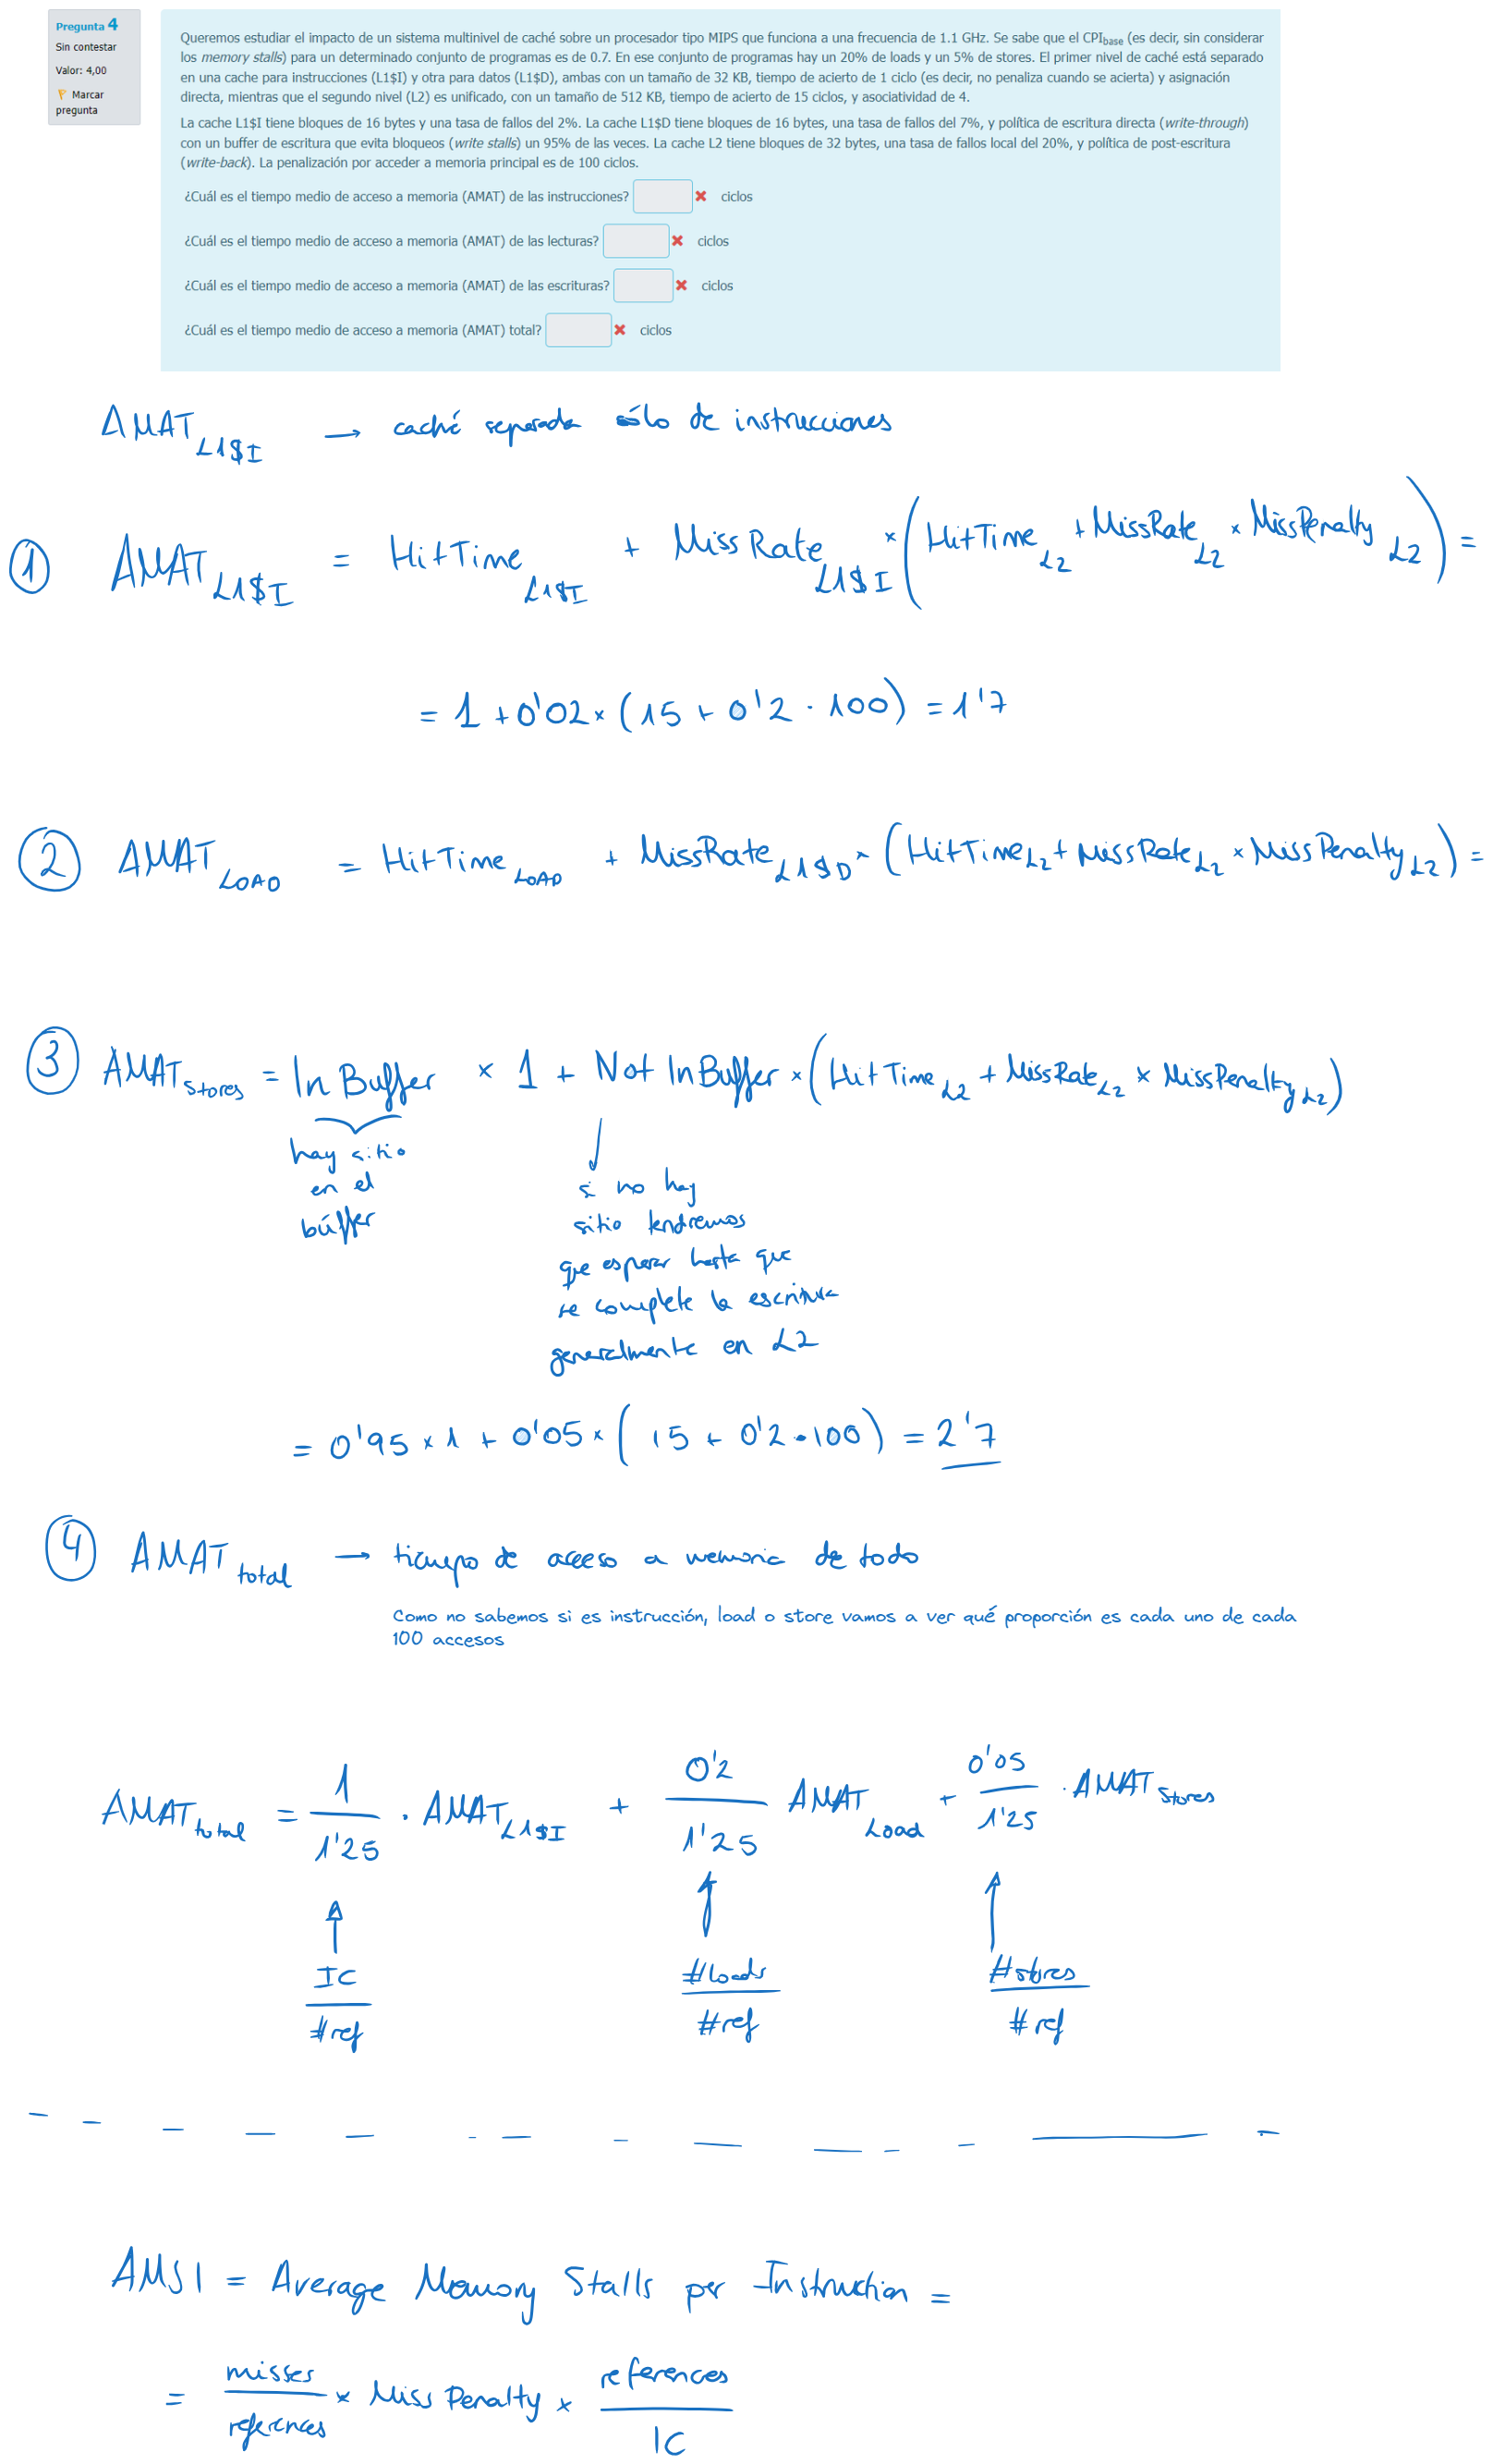 Pregunta 4
Sin contestar
Valor: 4,00
Marcar
pregunta
Queremos estudiar el impacto de un sistema multinivel de caché sobre un procesador tipo MIPS que funciona a una frecuencia de 1.1 GHz. Se sabe que el CPIbase (es decir, sin considerar
los memory stalls) para un determinado conjunto de programas es de 0.7. En ese conjunto de programas hay un 20% de loads y un 5% de stores. El primer nivel de caché está separado
en una cache para instrucciones (L1$I) y otra para datos (L1$D), ambas con un tamaño de 32 KB, tiempo de acierto de 1 ciclo (es decir, no penaliza cuando se acierta) y asignación
directa, mientras que el segundo nivel (L2) es unificado, con un tamaño de 512 KB, tiempo de acierto de 15 ciclos, y asociatividad de 4.
La cache L1$I tiene bloques de 16 bytes y una tasa de fallos del 2%. La cache L1$D tiene bloques de 16 bytes, una tasa de fallos del 7%, y política de escritura directa (write-through)
con un buffer de escritura que evita bloqueos (write stalls) un 95% de las veces. La cache L2 tiene bloques de 32 bytes, una tasa de fallos local del 20%, y política de post-escritura
(write-back). La penalización por acceder a memoria principal es de 100 ciclos.
¿Cuál es el tiempo medio de acceso a memoria (AMAT) de las instrucciones? ciclos
¿Cuál es el tiempo medio de acceso a memoria (AMAT) de las lecturas? ciclos
¿Cuál es el tiempo medio de acceso a memoria (AMAT) de las escrituras? ciclos
¿Cuál es el tiempo medio de acceso a memoria (AMAT) total? ciclos
AMAT L1$I → caché separada sólo de instrucciones
① AMAT L1$I = HitTime L1$I + Miss Rate L1$I × (HitTime L2 + MissRate L2 × MissPenalty L2) =
= 1 + 0'02 × (15 + 0'2 · 100) = 1'7
② AMAT LOAD = HitTime LOAD + MissRate L1$D × (HitTime L2 + MissRate L2 × MissPenalty L2) =
③ AMAT Stores = In Buffer × 1 + Not InBuffer × (HitTime L2 + MissRate L2 × MissPenalty L2)
hay sitio
en el
búffer
si no hay
sitio tendremos
que esperar hasta que
se complete la escritura
generalmente en L2
= 0'95 × 1 + 0'05 × (15 + 0'2 · 100) = 2'7
④ AMAT total → tiempo de acceso a memoria de todo
Como no sabemos si es instrucción, load o store vamos a ver qué proporción es cada uno de cada
100 accesos
AMAT total = 1/1'25 · AMAT L1$I + 0'2/1'25 AMAT Load + 0'05/1'25 · AMAT Stores
IC/#ref #loads/#ref #stores/#ref
AMSI = Average Memory Stalls per Instruction =
= misses/references × Miss Penalty × references/IC